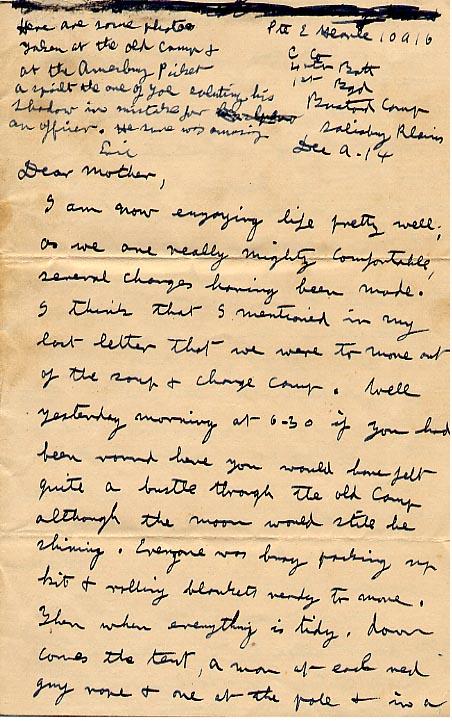 Here are some photos
taken at the old Camp &
at the Amesbury Picket
a spirit the one of Joe saluting his
shadow in mistake for
an officer. He sure was amusing
Eric
Pte E Hearle 1 0916
C Co
4th Batt
1st Bgd
Bustard Camp
Salisbury Plains
Dec 9-14
Dear Mother,
I am now enjoying life pretty well,
as we are really mighty comfortable,
several changes having been made.
I think that I mentioned in my
last letter that we were to move out
of the soup & change camp. Well
yesterday morning at 6-30 if you had
been round here you would have felt
quite a bustle through the old Camp
although the moon would still be
shining. Everyone was busy packing up
kit & rolling blankets ready to move.
Then when everything is tidy, down
comes the tent, a man at each red
guy rope & one at the pole & in a